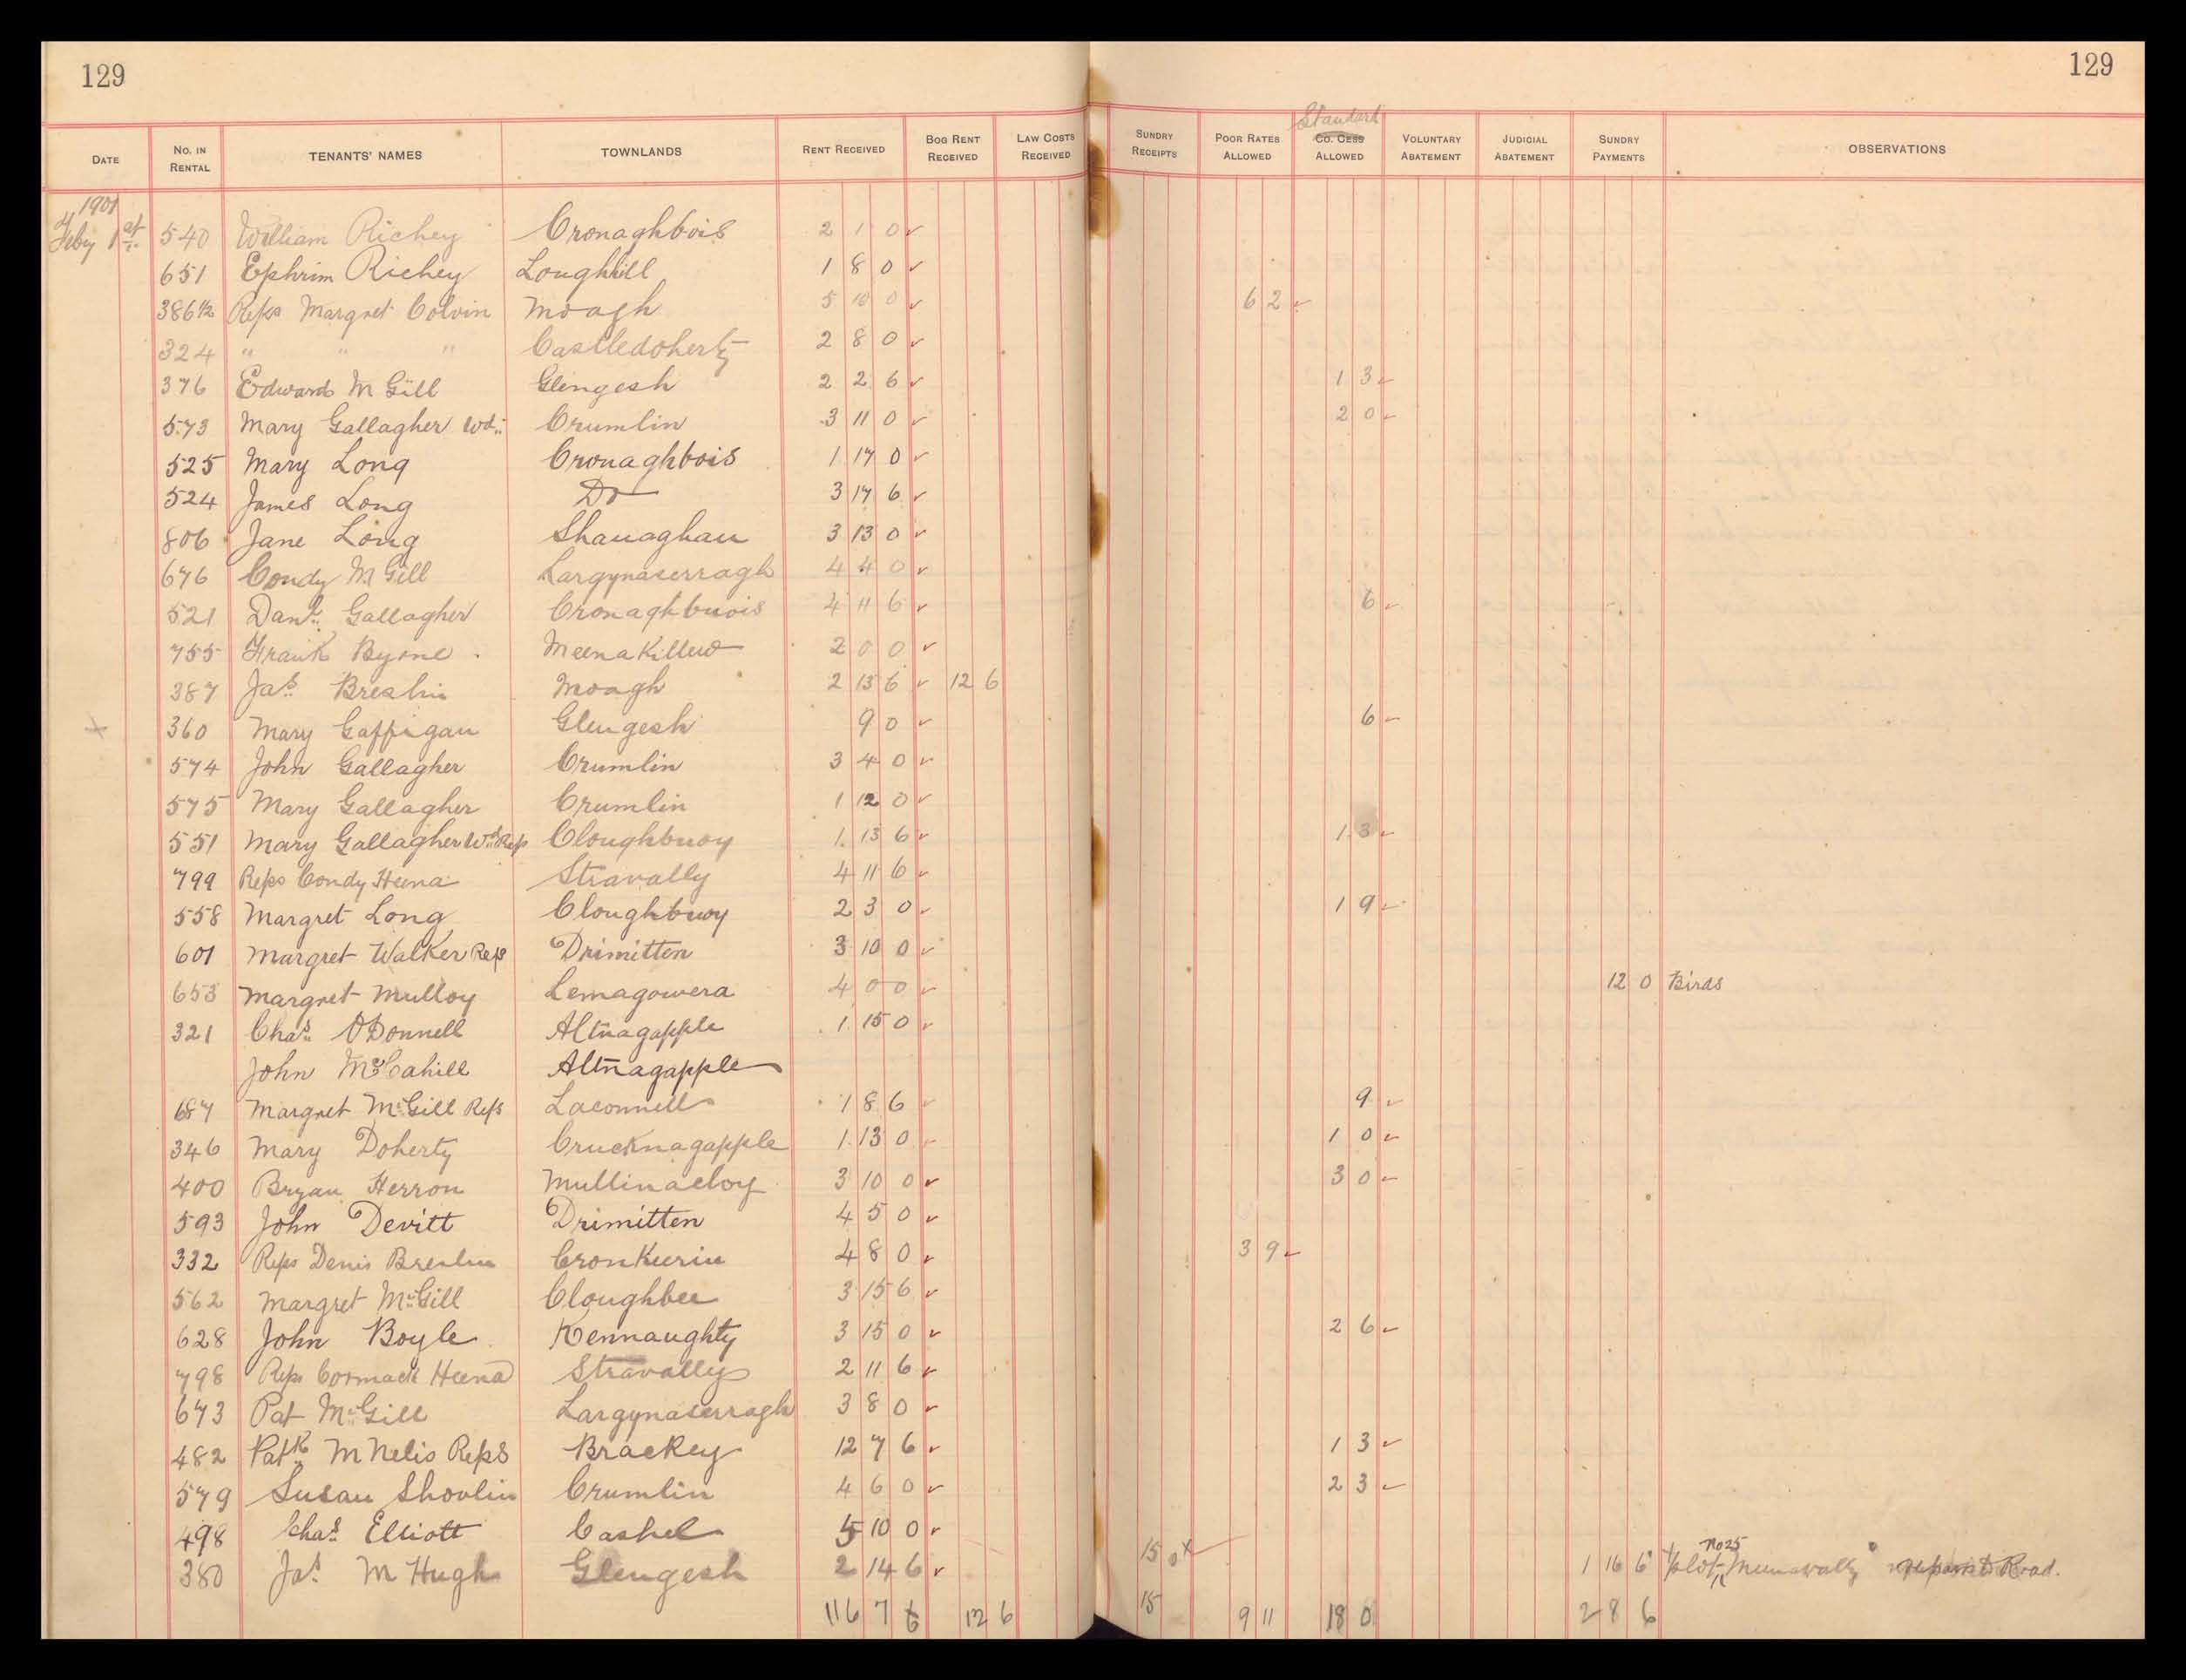 129 129
DATE No. IN RENTAL TENANTS' NAMES TOWNLANDS RENT RECEIVED BOG RENT RECEIVED LAW COSTS RECEIVED SUNDRY RECEIPTS POOR RATES ALLOWED Standard Co. Cess ALLOWED VOLUNTARY ABATEMENT JUDICIAL ABATEMENT SUNDRY PAYMENTS OBSERVATIONS
1901
Feby 1st 540 William Richey Cronaghbois 2 1 0
651 Ephrim Richey Loughhill 1 8 0
386 1/2 Reps Margret Colvin Moagh 5 10 0 6 2
324 " " " Castledoherty 2 8 0
376 Edward M Gill Glengesh 2 2 6 1 3
573 Mary Gallagher Wd. Crumlin 3 11 0 2 0
525 Mary Long Cronaghbois 1 17 0
524 James Long Do 3 17 6
806 Jane Long Shanaghan 3 13 0
676 Condy M Gill Largynaserragh 4 4 0
521 Danl. Gallagher Cronaghbuois 4 11 6 6
755 Frank Byrne Meenakillew 2 0 0
387 Jas. Breslin Moagh 2 13 6 12 6
360 Mary Gaffigan Glengesh 9 0 6
574 John Gallagher Crumlin 3 4 0
575 Mary Gallagher Crumlin 1 12 0
551 Mary Gallagher Wd. Reps Cloughbuoy 1 13 6 1 3
799 Reps Condy Heena Stravally 4 11 6
558 Margret Long Cloughbuoy 2 3 0 1 9
601 Margret Walker Reps Drimitten 3 10 0
653 Margret Mulloy Lemagowera 4 0 0 12 0 Birds
321 Chas. O'Donnell Altnagapple 1 15 0
John McCahill Altnagapple
687 Margret McGill Reps Laconnell 1 8 6 9
346 Mary Doherty Crucknagapple 1 13 0 1 0
400 Bryan Herron Mullinacloy 3 10 0 3 0
593 John Devitt Drimitten 4 5 0
332 Reps Denis Breslin Cronkeerin 4 8 0 3 9
562 Margret McGill Cloughbee 3 15 6
628 John Boyle Kennaughty 3 15 0 2 6
798 Reps Cormack Heena Stravally 2 11 6
673 Pat McGill Largynaserragh 3 8 0
482 Patk. M Nelis Reps Brackey 12 7 6 1 3
579 Susan Shovlin Crumlin 4 6 0 2 3
498 Chas. Elliott Cashel 5 10 0
380 Jas. M Hugh Glengesh 2 14 6 15 0 1 16 6 plot No 25 Meenavally Road.
116 7 6 12 6 15 9 11 18 0 2 8 6